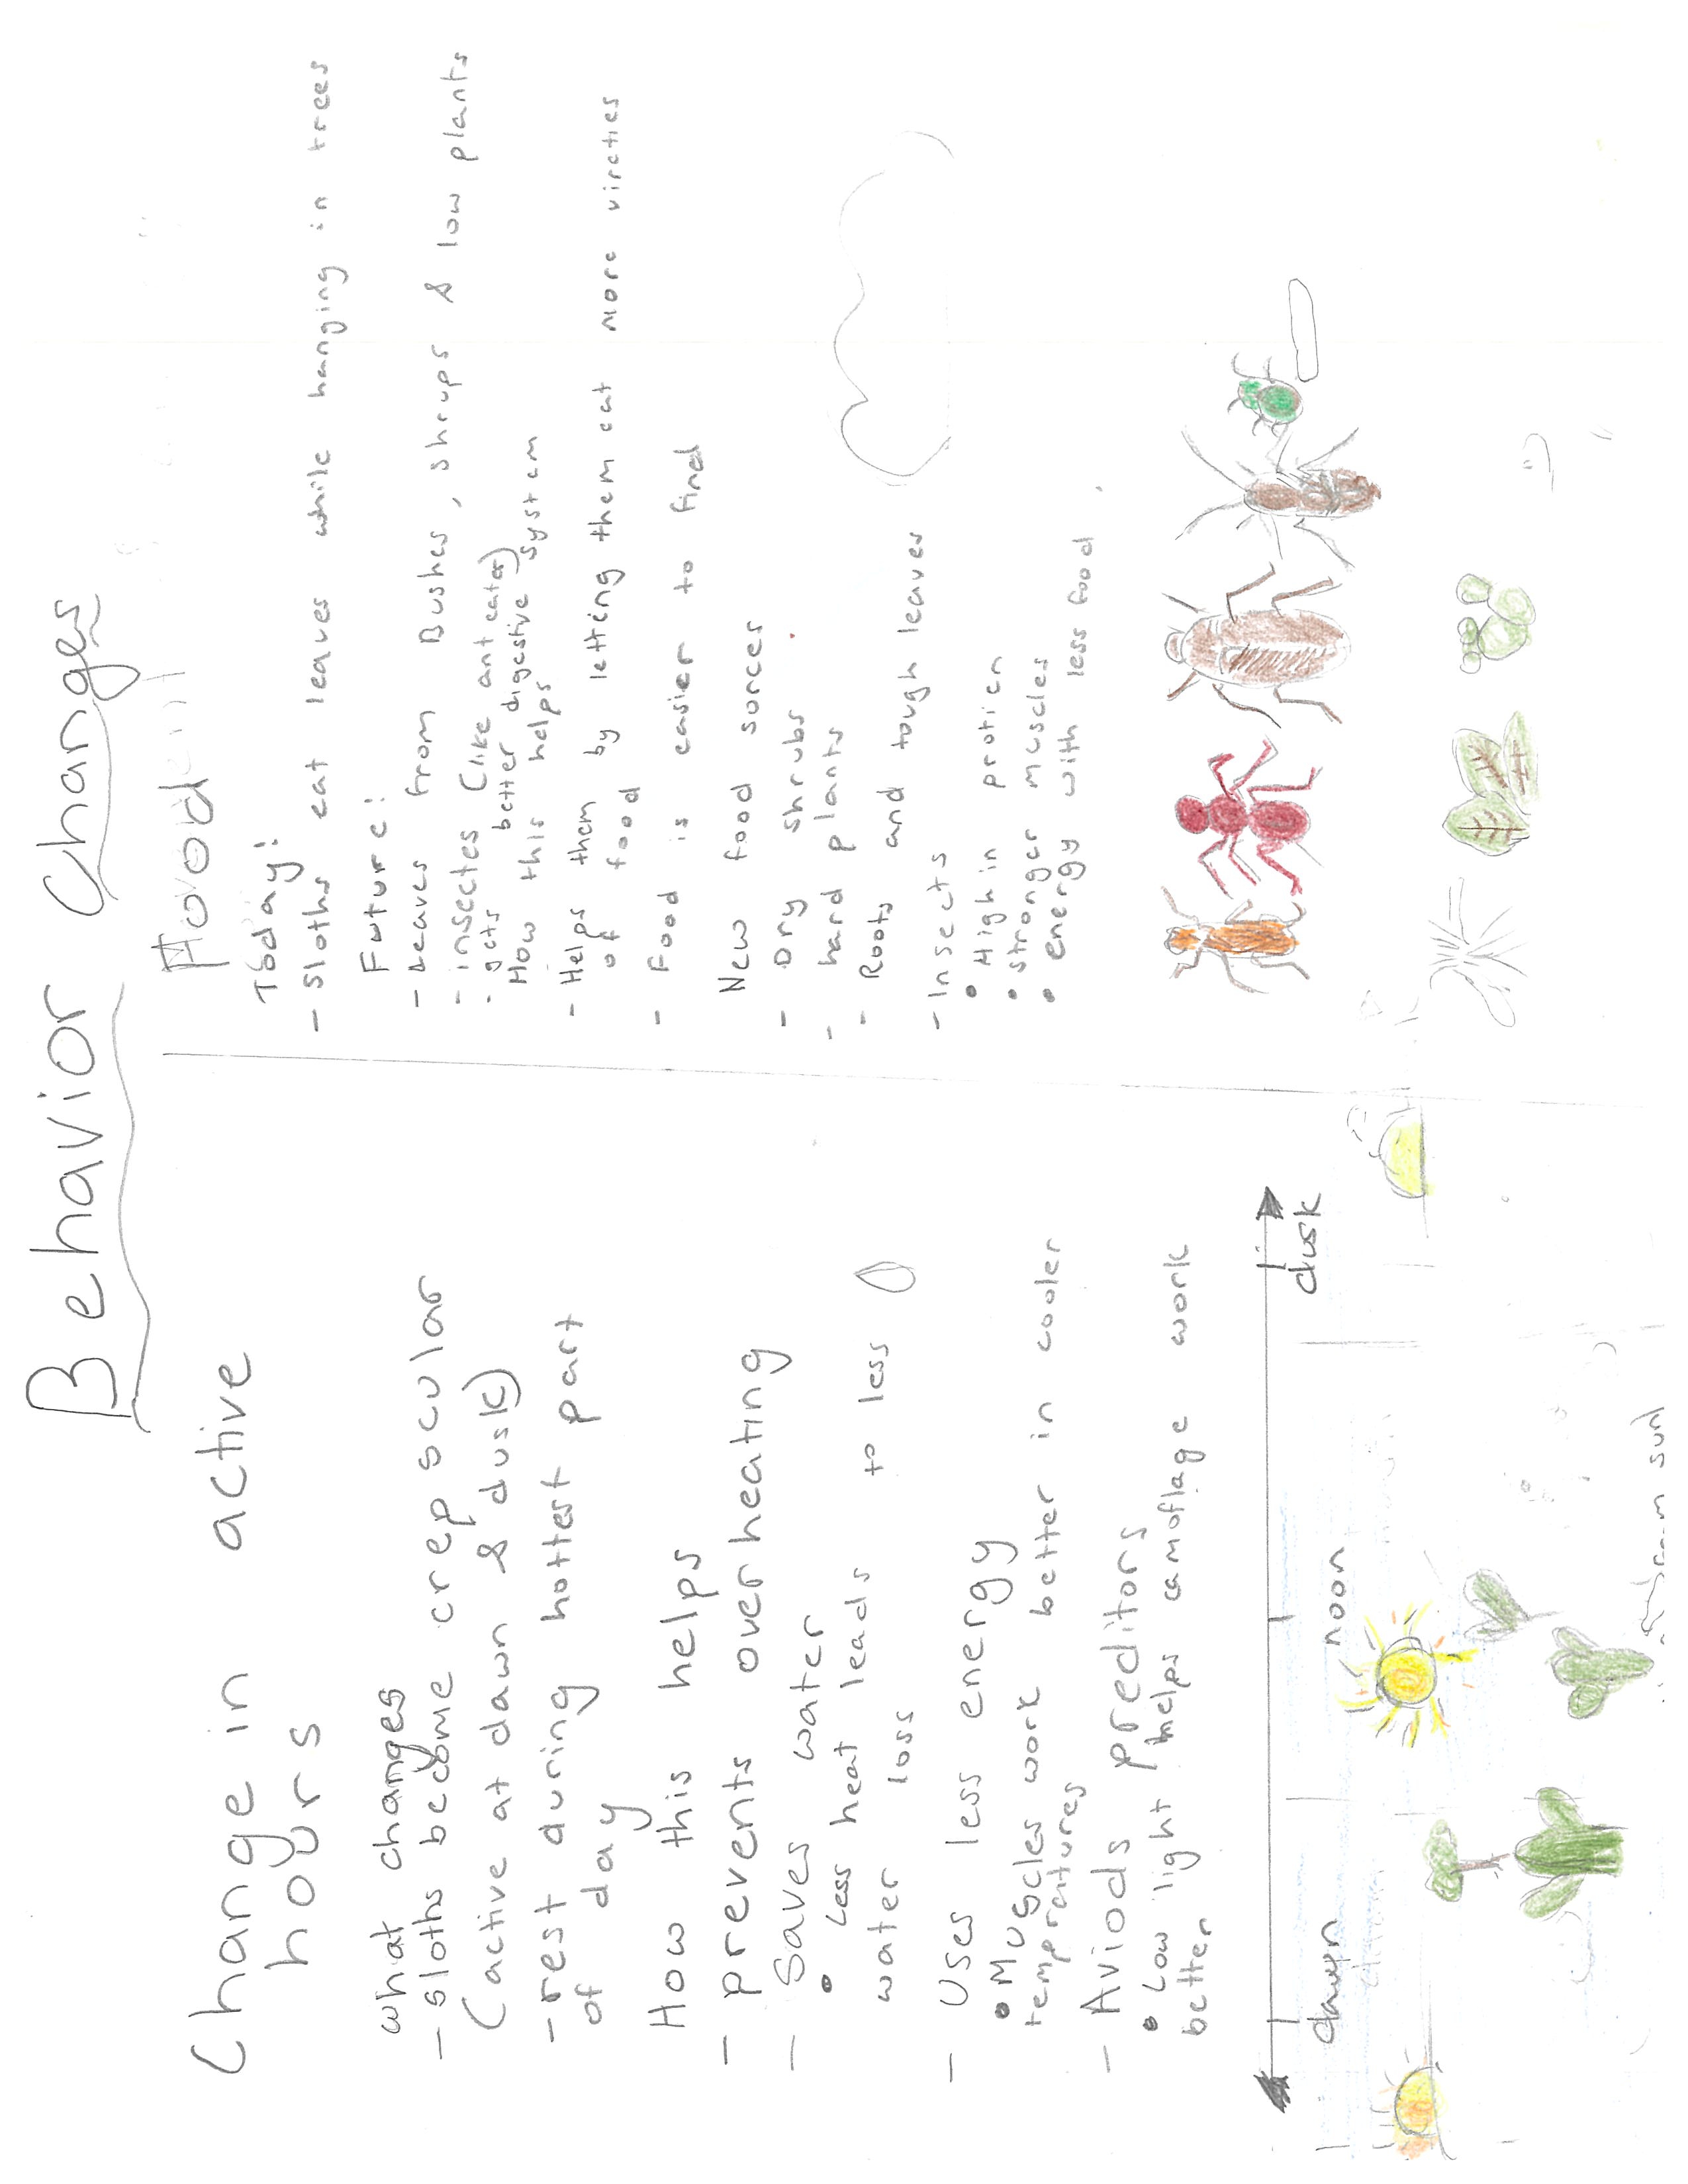 Behavior Changes
Change in active
hours
what changes
- sloths become crep scular
(active at dawn & dusk)
- rest during hottest part
of day
How this helps
- prevents overheating
- Saves water
• Less heat leads to less
water loss
- Uses less energy
• Muscles work better in cooler
tempratures
- Aviods preditors
• Low light helps camoflage work
better
dawn
noon
dusk
Food
Today:
- sloths eat leaves while hanging in trees
Future:
- Leaves from Bushes, shrups & low plants
- insectes (like ant eater)
- gets better digestive system
How this helps
- Helps them by letting them eat more vireties
of food
- Food is easier to find
New food sorces
- Dry shrubs
- hard plants
- Roots and tough leaves
- Insects
• High in protien
• stronger muscles
• energy with less food